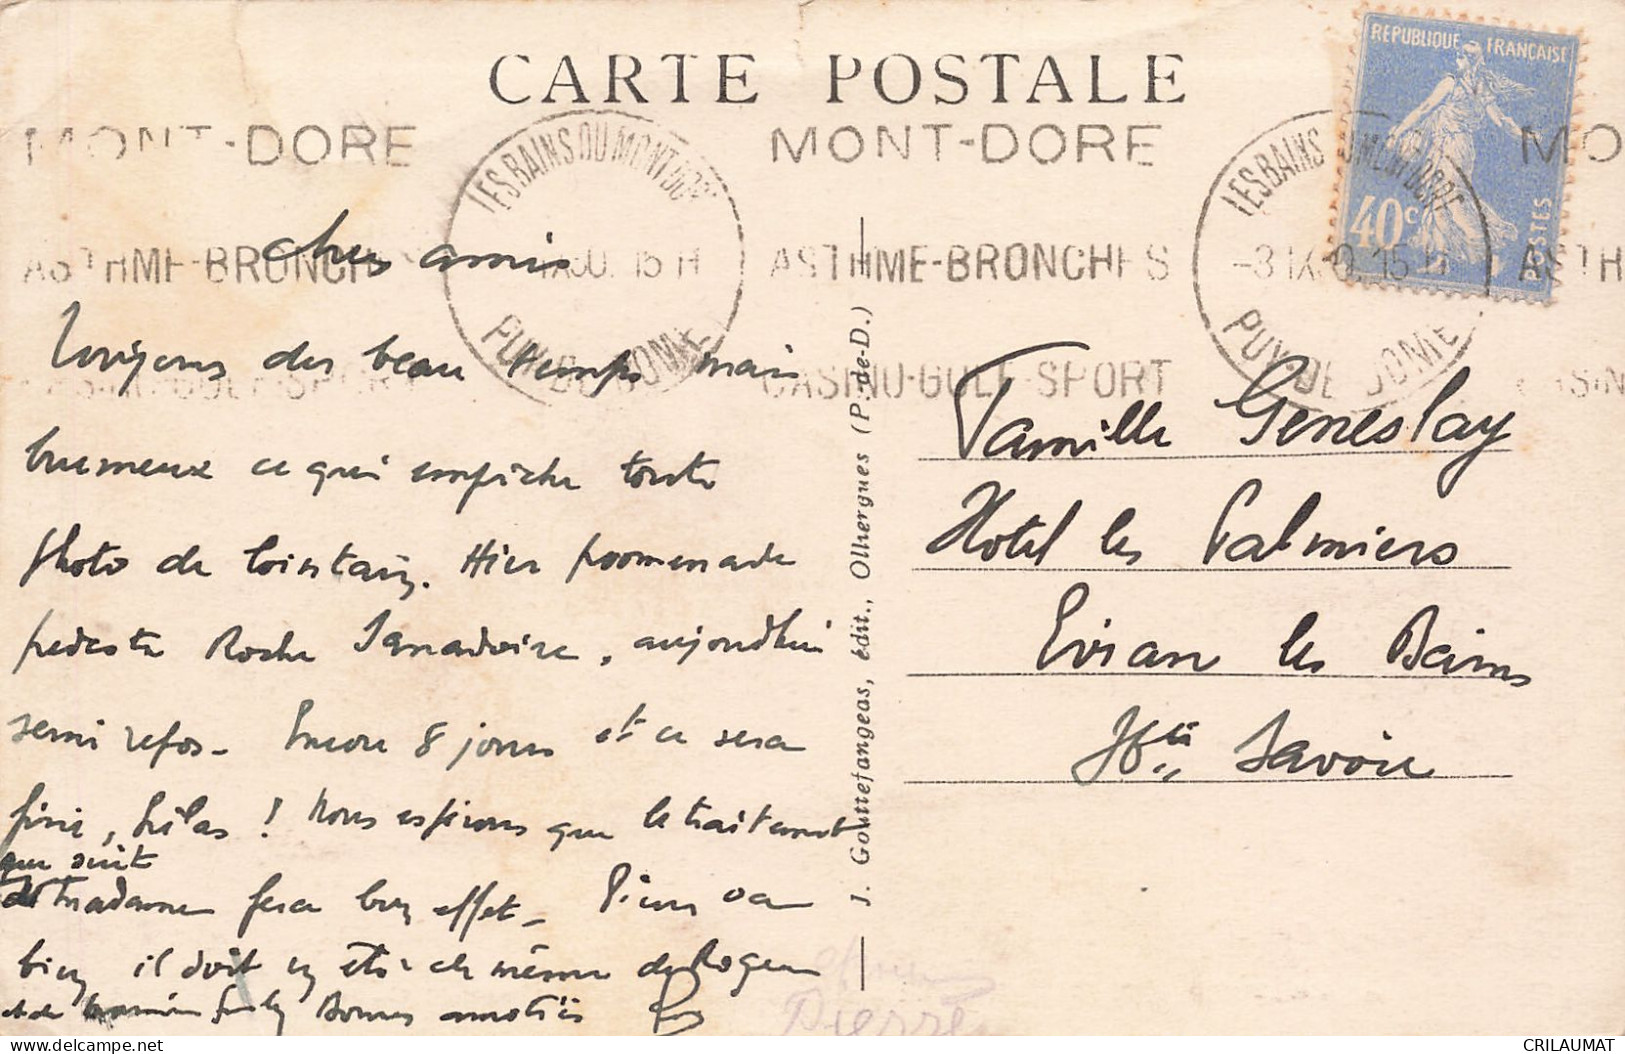 CARTE POSTALE
REPUBLIQUE FRANÇAISE
40c
POSTES
MONT-DORE
MONT-DORE
MO
LES BAINS DU MONT DORE
LES BAINS DU MONT DORE
ASTHME-BRONCH
ASTHME-BRONCHES
ASTH
15 H
-3 IX 15 H
PUY DE DOME
PUY DE DOME
CASINO-GOLF-SPORT
CASINO-GOLF-SPORT
CASIN
Chers amis
Toujours du beau temps mais
brumeux ce qui empêche toute
photo de lointain. Hier promenade
pedestre Roche Sanadoire, aujourd'hui
semi repos - Encore 8 jours et ce sera
fini, hélas ! Nous espérons que le traitement
que suit
Madame fera bon effet - Pierre va
bien, il doit en être de même de Roger
et de Bonnes amitiés
Pierre
J. Gouttefangeas, édit., Olliergues (P.-de-D.)
Famille Geneslay
Hotel les Palmiers
Evian les Bains
Hte Savoie
CRILAUMAT